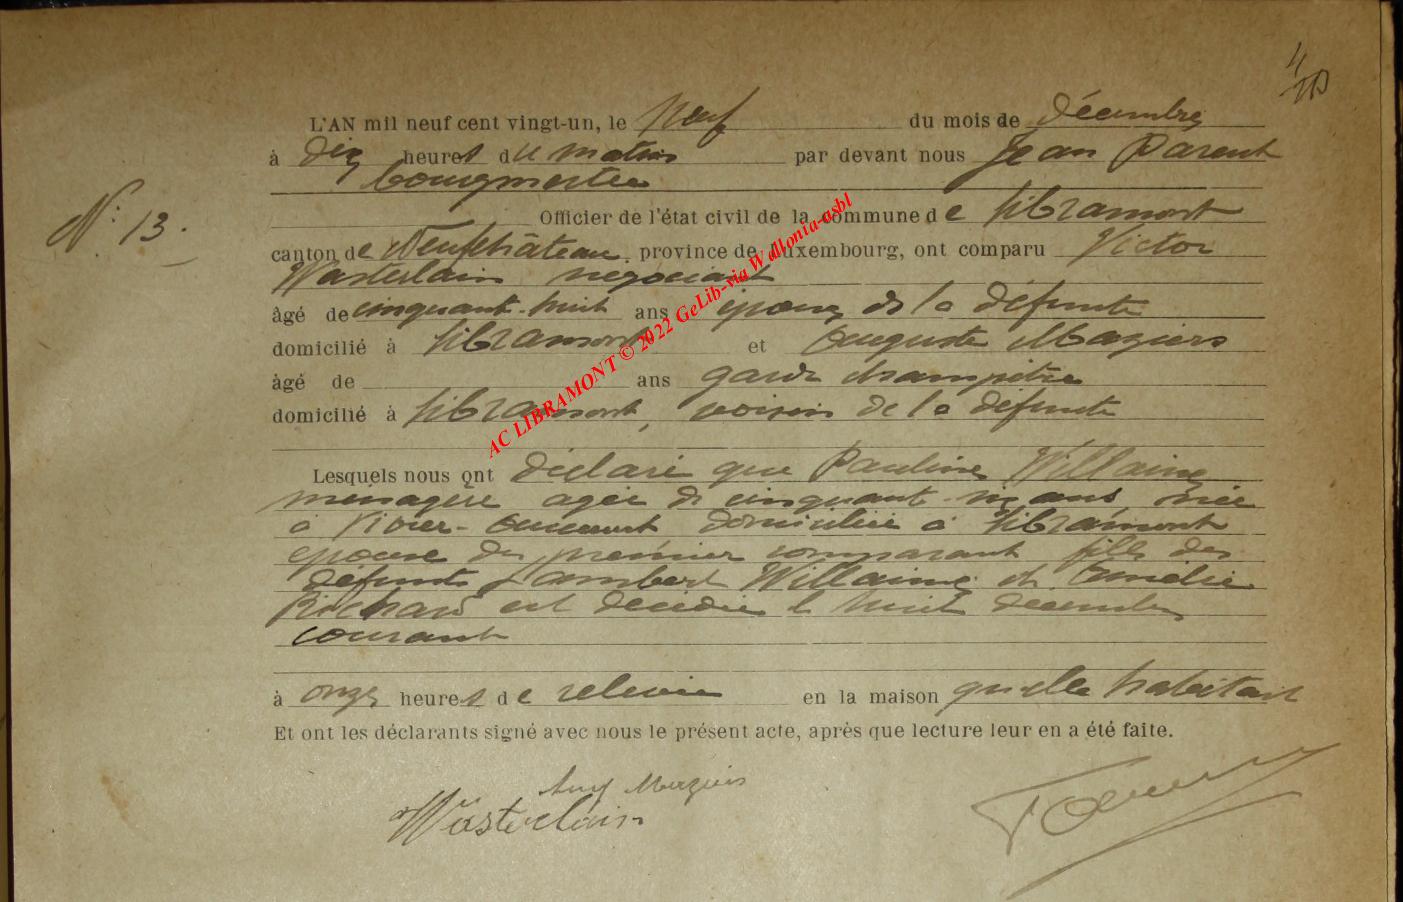 L'AN mil neuf cent vingt-un, le neuf du mois de décembre
à dix heures du matin par devant nous Jean Parent
bourgmestre
N° 13.
Officier de l'état civil de la commune de Libramont
canton de Neufchâteau, province de Luxembourg, ont comparu Victor
Wasterlain négociant
âgé de cinquante-huit ans époux de la défunte
domicilié à Libramont et Auguste Maziers
âgé de ans garde champêtre
domicilié à Libramont, voisin de la défunte
Lesquels nous ont déclaré que Pauline Willaime
ménagère agée de cinquante ans, née
à domiciliée à Libramont
épouse du premier comparant fille des
défunts Lambert Willaime et Amélie
Richard est décédée le huit décembre
courant
à onze heures de relevée en la maison qu'elle habitait
Et ont les déclarants signé avec nous le présent acte, après que lecture leur en a été faite.
Aug Maziers
Wasterlain
AC LIBRAMONT © 2022 GeLib-via Wallonia-asbl